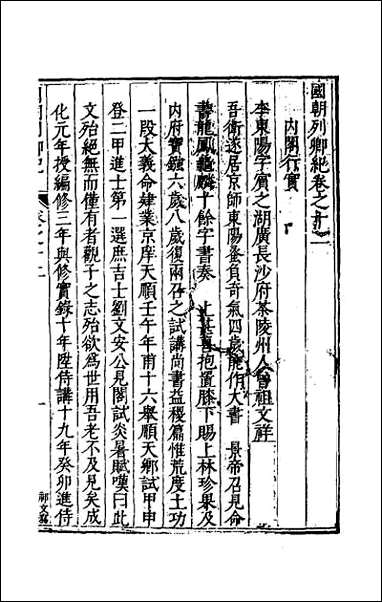 國朝列卿紀卷之十一
內閣行實
李東陽字賓之湖廣長沙府茶陵州人曾祖文祥
吾衛遂居京師東陽蚤負奇氣四歲能作大書 景帝召見命
書龍鳳龜麟十餘字書奏 上甚喜抱置膝下賜上林珍果及
內府寶鏹六歲八歲復兩召之試講尚書益稷篇惟荒度土功
一段大義命肄業京庠天順壬午年甫十六舉順天鄉試甲申
登二甲進士第一選庶吉士劉文安公見閣試炎暑賦嘆曰此
文殆絕無而僅有者觀子之志殆欲為世用吾老不及見矣成
化元年授編修三年與修實錄十年陞侍講十九年癸卯進侍